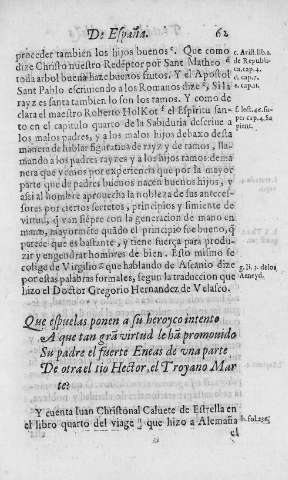 De España. 62
proceder tambien los hijos buenos c. Que como
dize Christo nuestro Redẽptor por Sant Matheo d
toda arbol buena haze buenos frutos. Y el Apostol
Sant Pablo escriuiendo a los Romanos dize e, Si la
rayz es santa tambien lo son los ramos. Y como de
clara el maestro Roberto HolKot f el Espiritu san-
to en el capitulo quarto de la Sabiduria descriue a
los malos padres, y a los malos hijos debaxo desta
manera de hablar figuratiua de rayz y de ramos, lla-
mando a los padres rayzes y a los hijos ramos: de ma
nera que vemos por experiencia que por la mayor
parte que de padres buenos nacen buenos hijos, y
assi al hombre aprouecha la nobleza de sus antecess-
sores por ciertos secretos, principios y simiente de
virtud, q̃ van siẽpre con la generacion de mano en
mano, mayormẽte quãdo el principio fue bueno, q̃
parece que es bastante, y tiene fuerça para produ-
zir y engendrar hombres de bien. Esto mismo se
colige de Virgilio g que hablando de Ascanio dize
por estas palabras formales, segun la traducion que
hizo el Doctor Gregorio Hernandez de Velasco.
Que espuelas ponen a su heroyco intento
A que tan grã virtud le hã promouido
Su padre el fuerte Eneas de vna parte
De otra el tio Hector, el Troyano Mar
te:
Y cuenta Iuan Christoual Caluete de Estrella en
el libro quarto del viage h que hizo a Alemaña
el
c. Arist. lib. 2.
de Republi-
ca. cap. 4.
d. cap. 7.
e. cap. 11.
f. lect. 46. su-
per cap. 4. Sa
pient.
g. li. 3. de los
Aeneyd.
h. fol. 236